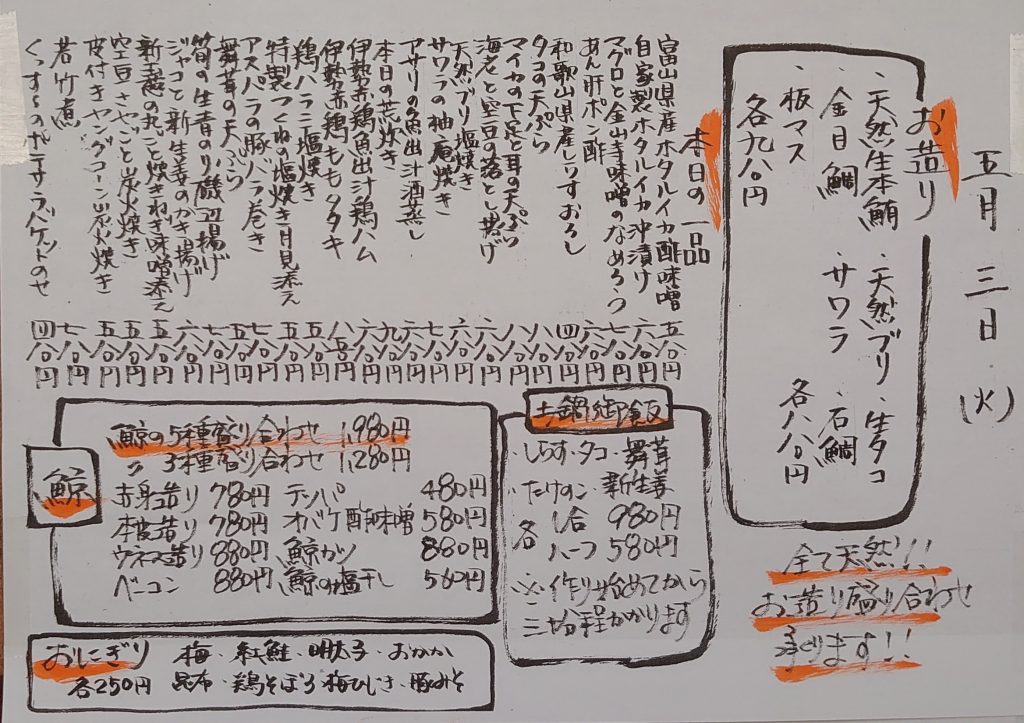 五月三日(火)
お造り
・天然生本鮪 ・天然ブリ ・生タコ
・金目鯛 ・サワラ ・石鯛
・板マス 各八八〇円
各九八〇円
全て天然!!
お造り盛り合わせ
承ります!!
本日の一品
富山県産ホタルイカ酢味噌 五八〇円
自家製ホタルイカ沖漬け 六八〇円
マグロと金山寺味噌のなめろう 七八〇円
あん肝ポン酢 六八〇円
和歌山県産しらすおろし 四八〇円
タコの天ぷら 八八〇円
マイカの下足と耳の天ぷら 八八〇円
海老と空豆の落とし揚げ 六八〇円
天然ブリ塩焼き 六八〇円
サワラの柚庵焼き 八八〇円
アサリの魚出汁酒蒸し 七八〇円
本日の荒炊き 九八〇円
伊勢赤鶏魚出汁鶏ハム 六八〇円
伊勢赤鶏ももタタキ 八五〇円
鶏ハラミ塩焼き 五八〇円
特製つくね塩焼き月見添え 五八〇円
アスパラの豚バラ巻き 七八〇円
舞茸の天ぷら 五八〇円
筍の生青のり磯辺揚げ 七八〇円
ジャコと新生姜のかき揚げ 六八〇円
新玉葱の丸ごと焼きねぎ味噌添え 五八〇円
空豆さやごと炭火焼き 五八〇円
皮付きヤングコーン炭火焼き 六八〇円
若竹煮 七八〇円
ポテサラバケットのせ 四八〇円
土鍋御飯
・しらす・タコ・舞茸
・たけのこ・新生姜
各 1合 980円
ハーフ 580円
※作り始めてから
三十分程かかります
鯨
鯨の5種盛り合わせ 1,980円
〃 3種盛り合わせ 1,280円
赤身造り 780円 テッパ 480円
本皮造り 780円 オバケ酢味噌 580円
ウネス造り 880円 鯨カツ 880円
ベーコン 880円 鯨の塩干し 560円
おにぎり 梅・紅鮭・明太子・おかか
各250円 昆布・鶏そぼろ・梅ひじき・豚みそ